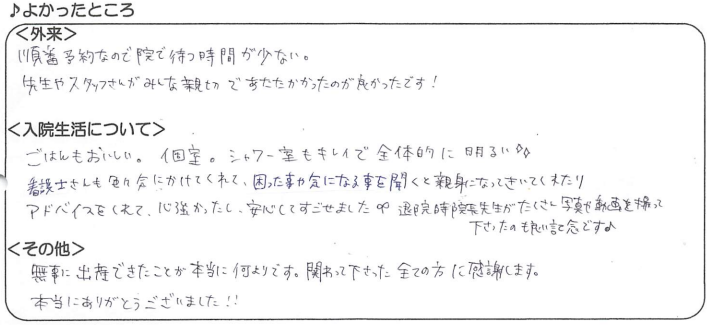 ♪よかったところ
<外来>
順番予約なので院で待つ時間が少ない。
先生やスタッフさんがみんな親切であたたかかったのが良かったです!
<入院生活について>
ごはんもおいしい。個室。シャワー室もキレイで全体的に明るい♪
看護士さんも色々気にかけてくれて、困った事や気になる事を聞くと親身になってきいてくれたり
アドバイスをくれて、心強かったし、安心してすごせました∞ 退院時院長先生がたくさん写真や動画を撮って
下さったのも良い記念です♪
<その他>
無事に出産できたことが本当に何よりです。関わって下さった全ての方に感謝します。
本当にありがとうございました!!